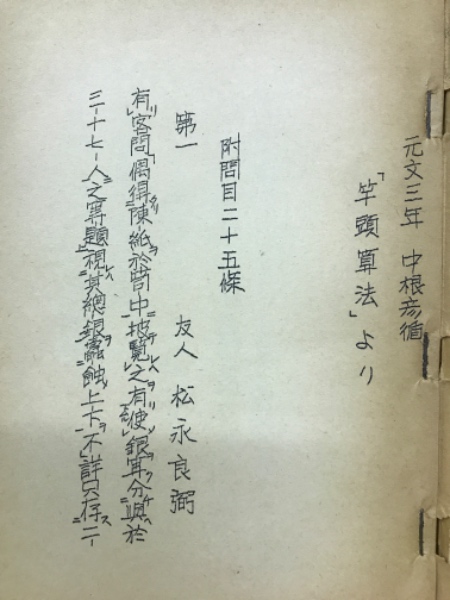 元文三年 中根彦循
「竿頭算法」より
附問目二十五條
第一 友人 松永良弼
有客問偶得陳紙於笥中披覧之有使銀耳分與於
三十七人之算題視其總銀蠹蝕上下不詳只存二